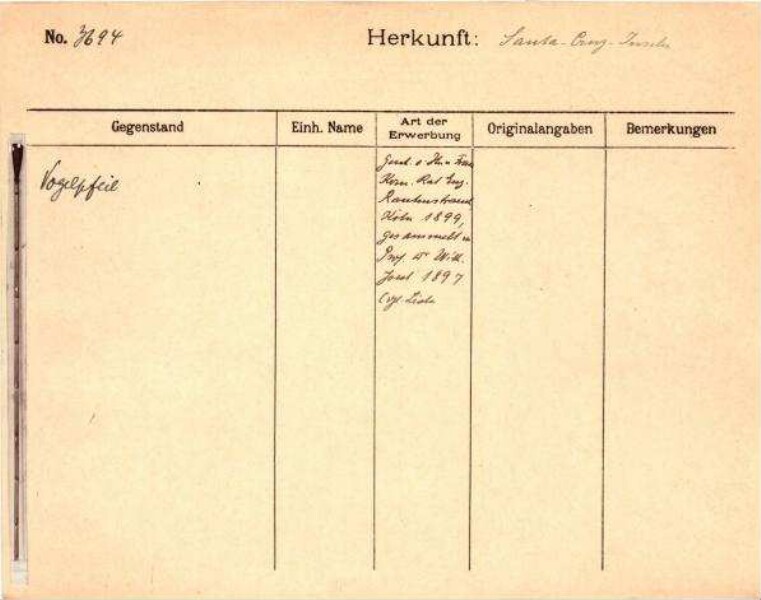 No. 3694 Herkunft: Santa-Cruz-Inseln
Gegenstand Einh. Name Art der Erwerbung Originalangaben Bemerkungen
Vogelpfeil
Gesch. v. Frau
Kom. Rat Eug.
Rautenstrauch
Köln 1899,
gesammelt v.
Prof. Dr Wilh.
Joest 1897